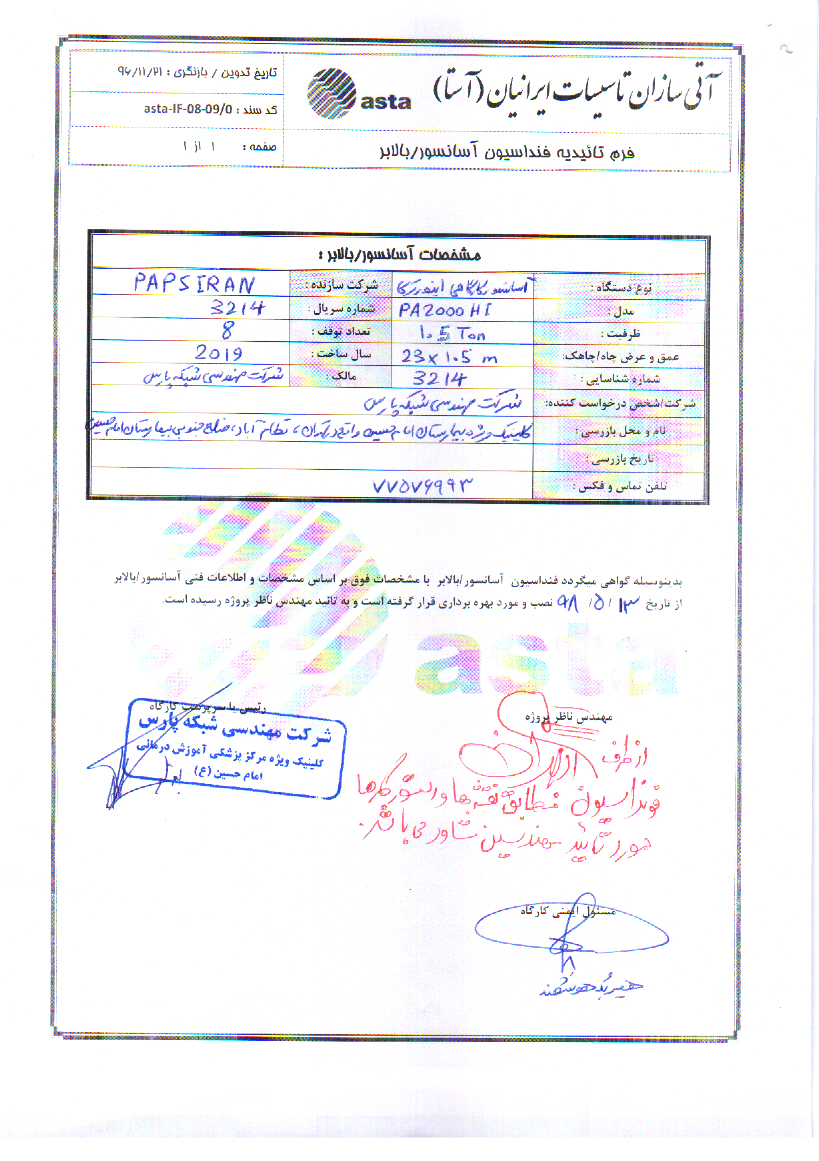 آتی سازان تاسیسات ایرانیان (آستا)
asta
تاریخ تدوین / بازنگری : ۹۶/۱۱/۲۱
کد سند : asta-IF-08-09/0
فرم تائیدیه فنداسیون آسانسور/بالابر
صفحه : ۱ از ۱
مشخصات آسانسور/بالابر :
نوع دستگاه : آسانسور کارگاهی
شرکت سازنده : PAPSIRAN
مدل : PA2000HI
شماره سریال : 3214
ظرفیت : 1.5 Ton
تعداد توقف : 8
عمق و عرض چاه/چاهک: 23 x 1.5 m
سال ساخت : 2019
شماره شناسایی : 3214
مالک : شرکت مهندسی شبکه پارس
شرکت/شخص درخواست کننده: شرکت مهندسی شبکه پارس
نام و محل بازرسی : کلینیک ویژه بیمارستان امام حسین واقع در تهران، نظام آباد، ضلع جنوبی بیمارستان امام حسین
تاریخ بازرسی :
تلفن تماس و فکس : ۷۷۵۷۶۹۹۳
بدینوسیله گواهی میگردد فنداسیون آسانسور/بالابر با مشخصات فوق بر اساس مشخصات و اطلاعات فنی آسانسور/بالابر
از تاریخ ۹۸/۵/۱۳ نصب و مورد بهره برداری قرار گرفته است و به تائید مهندس ناظر پروژه رسیده است.
asta
مهندس ناظر پروژه
رئیس یا سرپرست کارگاه
شرکت مهندسی شبکه پارس
کلینیک ویژه مرکز پزشکی آموزش درمانی
امام حسین (ع)
از طرف
فونداسیون مطابق نقشه ها و دستورکارها
مورد تائید مهندسین مشاور می باشد.
مسئول ایمنی کارگاه
هیربد هوشمند